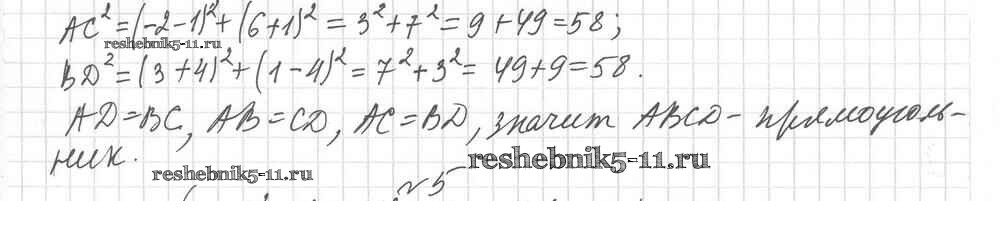 AC² = (-2-1)² + (6+1)² = 3² + 7² = 9 + 49 = 58;
reshebnik5-11.ru
BD² = (3+4)² + (1-4)² = 7² + 3² = 49 + 9 = 58.
AD = BC, AB = CD, AC = BD, значит ABCD - прямоуголь-
ник.
reshebnik5-11.ru
reshebnik5-11.ru
№5